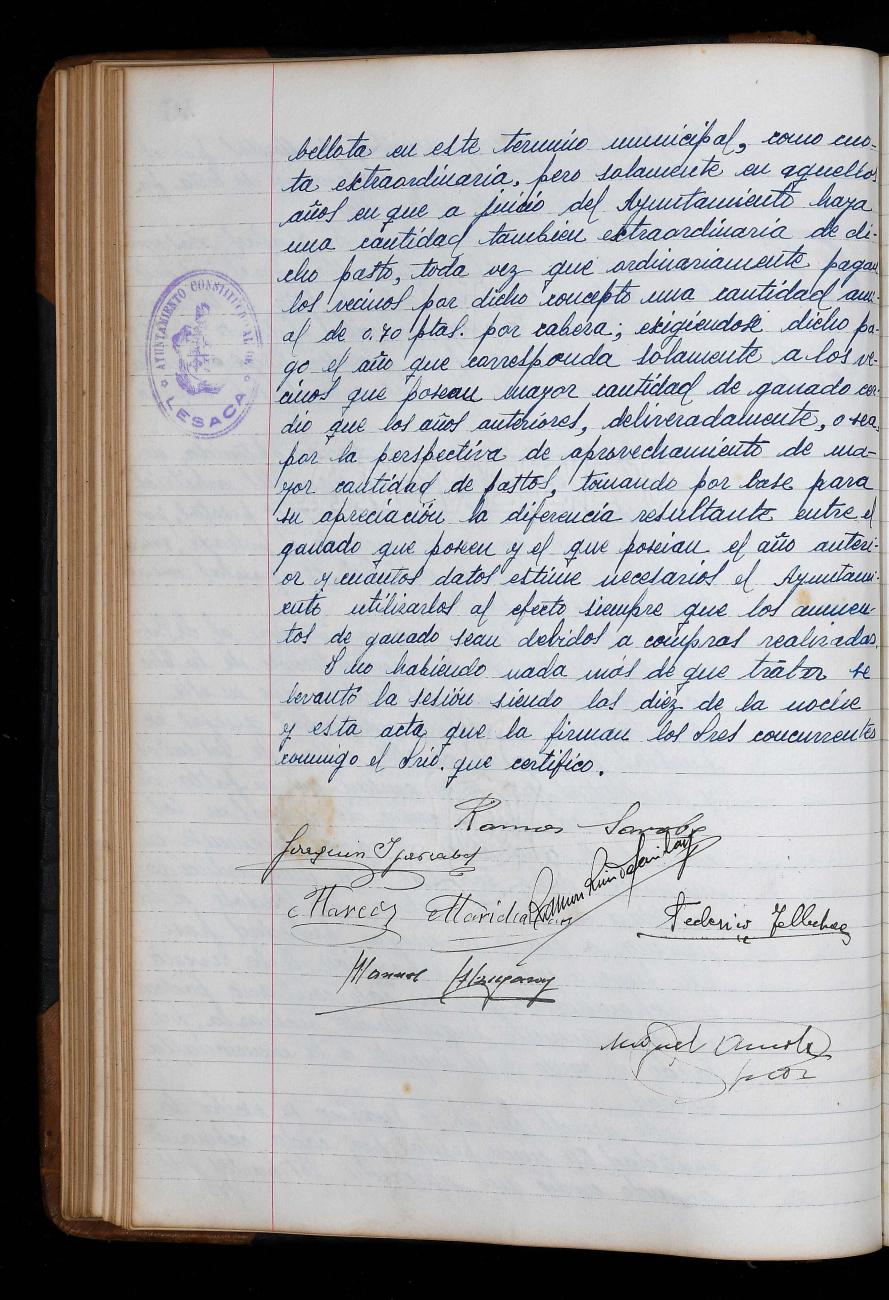 bellota en este termino municipal, como cuo-
ta extraordinaria, pero solamente en aquellos
años en que a juicio del Ayuntamiento haya
una cantidad tambien extraordinaria de di-
cho pasto, toda vez que ordinariamente pagan
los vecinos por dicho concepto una cantidad anu-
al de 0.70 ptas. por cabeza; exigiendose dicho pa-
go el año que corresponda solamente a los ve-
cinos que posean mayor cantidad de ganado cer-
dio que los años anteriores, deliveradamente, o sea,
por la perspectiva de aprovechamiento de ma-
yor cantidad de pastos, tomando por base para
su apreciación la diferencia resultante entre el
ganado que poseen y el que poseian el año anteri-
or y cuantos datos estime necesarios el Ayuntami-
ento utilizarlos al efecto siempre que los aumen-
tos de ganado sean debidos a compras realizadas.
Y no habiendo nada más de que tratar se
levantó la sesión siendo las diez de la noche
y esta acta que la firman los Sres concurrentes
conmigo el Srio. que certifico.
AYUNTAMIENTO CONSTITUCIONAL DE
LESACA
Ramon
Joaquin
Marcos
Ramon
Federico Tellechea
Manuel
Miguel